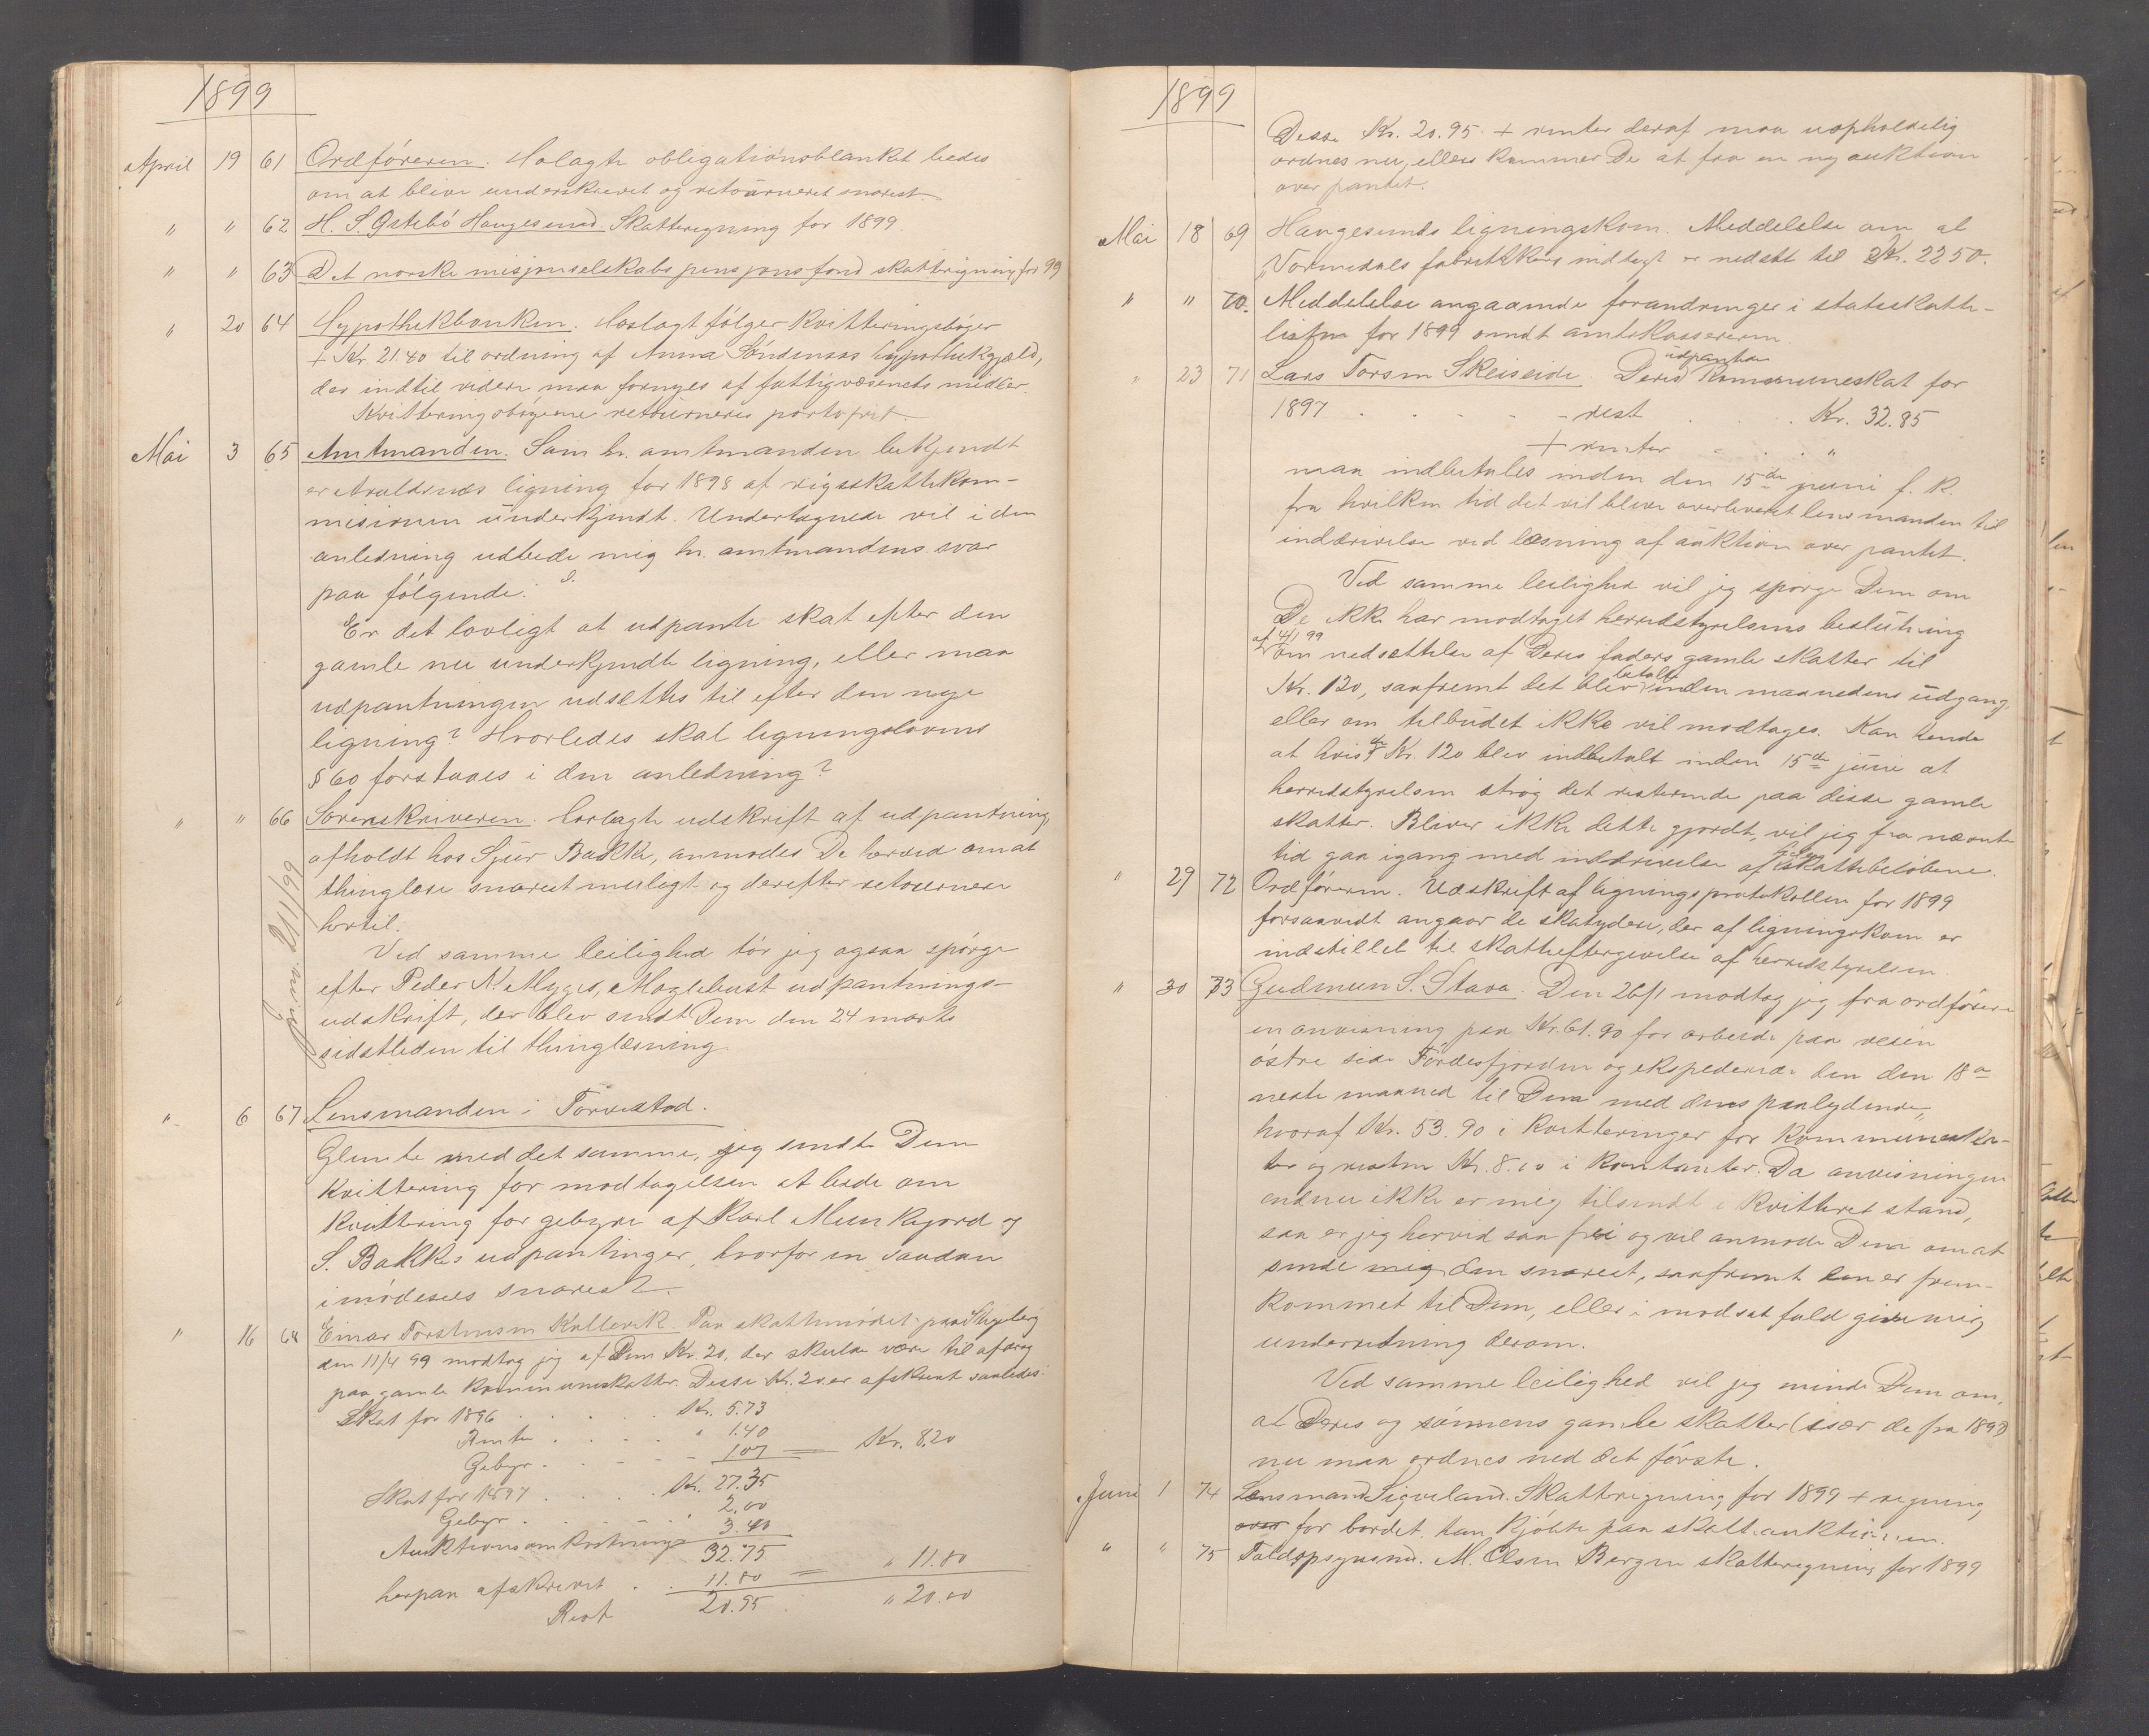 1899
April 19 61 Ordføreren. Holagte obligationsblanket bedes
om at blive underskrevet og retourneret snarest.
" " 62 H. S. Østebø Haugesund. Skatteregning for 1899
" " 63 Det norske misjonselskabs pensjonsfond skatteregning for 99
" 20 64 Hypothekbanken. Hoslagt følger kvitteringsbøger
+ Kr 21.40 til ordning af Anna Søndenaas hypothekgjæld,
der indtil videre maa fornyes af fattigvæsenets midler.
Kvitteringsbøgerne retourneres portofrit.
Mai 3 65 Amtmanden. Som hr. amtmanden bekjendt
er Avaldsnes ligning for 1898 af rigsskattekom-
misionen underkjendt. Undertegnede vil i den
anledning udbede mig hr. amtmandens svar
paa følgende:
Er det lovligt at udpante skat efter den
gamle nu underkjendte ligning, eller maa
udpantningen udsettes til efter den nye
ligning? Hvorledes skal ligningslovens
§ 60 forstaaes i den anledning?
" " 66 Sorenskriveren. Hoslagte udskrift af udpantning
afholdt hos Sjur Bakke, anmodes De herved om at
thinglæse snarest muligt og derefter retournere
hertil.
Ved samme leilighed tør jeg ogsaa spørge
efter Peder N. Mygges, Moglebust udpantnings-
udskrift, der blev sendt Dem den 24 marts
sidstleden til thinglæsning.
Jr. no. 21/99
" 6 67 Lensmanden i Torvestad.
Glemte med det samme, jeg sendte Dem
kvittering for modtagelsen at bede om
kvittering for gebyre af Karl Munkejord og
S. Bakkes udpantinger, hvorfor en saadan
imødesees snarest.
" 16 68 Einar Torstensen Kallevik. Paa skattemødet paa Bygberg
den 11/4 99 modtog jeg af Dem Kr. 20, der skulde være til afdrag
paa gamle kommuneskatter. Desse Kr. 20 er afskrevt saaledes:
Skat for 1896 . . . . Kr. 5.73
Rente . . . . " 1.40
Gebyr . . . . 1.07 = Kr. 8.20
Skat for 1897 . . . . Kr. 27.35
Gebyr . . . . 2.00
Auktionsomkostninger 3.40
32.75
herpaa afskrevet . . 11.80 = " 11.80
Rest 20.95 " 20.00
1899
Desse Kr. 20.95 + renter deraf maa uopholdelig
ordnes nu, ellers kommer De at faa en ny auktion
over pantet.
Mai 18 69 Haugesunds ligningskom. Meddelelse om at
"Vormedals fabrikkers indtægt er nedsat til Kr. 2250.
" " 70. Meddelelse angaaende forandringer i statsskatte-
listen for 1899 sendt amtskassereren.
" 23 71 Lars Torsen Skeiseide. Deres udpantede kommuneskat for
1897 . . . . - rest . . . Kr. 32.85
+ renter . . . "
maa indbetales inden den 15de juni f. k.
fra hvilken tid det vil blive overleveret lensmanden til
inddrivelse ved løsning af auktion over pantet.
Ved samme leilighed vil jeg spørge Dem om
De ikke har modtaget herredstyrelsens beslutning
af 4/1 99
om nedsettelse af Deres faders gamle skatter til
Kr. 120, saafremt det blev betalt inden maanedens udgang,
eller om tilbudet ikke vil modtages. Kan hende
at hvis de Kr. 120 blev indbetalt inden 15de juni at
herredstyrelsen strøg det resterende paa disse gamle
skatter. Bliver ikke dette gjordt, vil jeg fra nævnte
tid gaa igang med inddrivelse af hele skattebeløbene.
" 29 72 Ordføreren. Udskrift af ligningsprotokollen for 1899
forsaavidt angaar de skatydere, der af ligningskom er
indstillet til skatteeftergivelse af herredstyrelsen
" 30 73 Gudmun S. Stava. Den 26/1 modtog jeg fra ordføreren
en anvisning paa Kr. 61.90 for arbeide paa veien
østre side Førdesfjorden og ekspederede den den 18de
neste maaned til Dem med dens paalydende,
hvoraf Kr. 53.90 i kvitteringer for kommuneskat-
ter og resten Kr. 8.00 i kontanter. Da anvisningen
endnu ikke er mig tilsendt i kvitteret stand,
saa er jeg herved saa fri og vil anmode Dem om at
sende mig den snarest, saafremt den er frem-
kommet til Dem, eller i modsat fald give mig
underretning derom.
Ved samme leilighed vil jeg minde Dem om,
at Deres og sønnens gamle skatter (især de fra 1897)
nu maa ordnes ved det første.
Juni 1 74 Lensmand Sigveland. Skatteregning for 1899 + regning
for bordet han kjøbte paa skatteauktionen.
" " 75 Toldopsynsmd. M. Olsen Bergen skatteregning for 1899